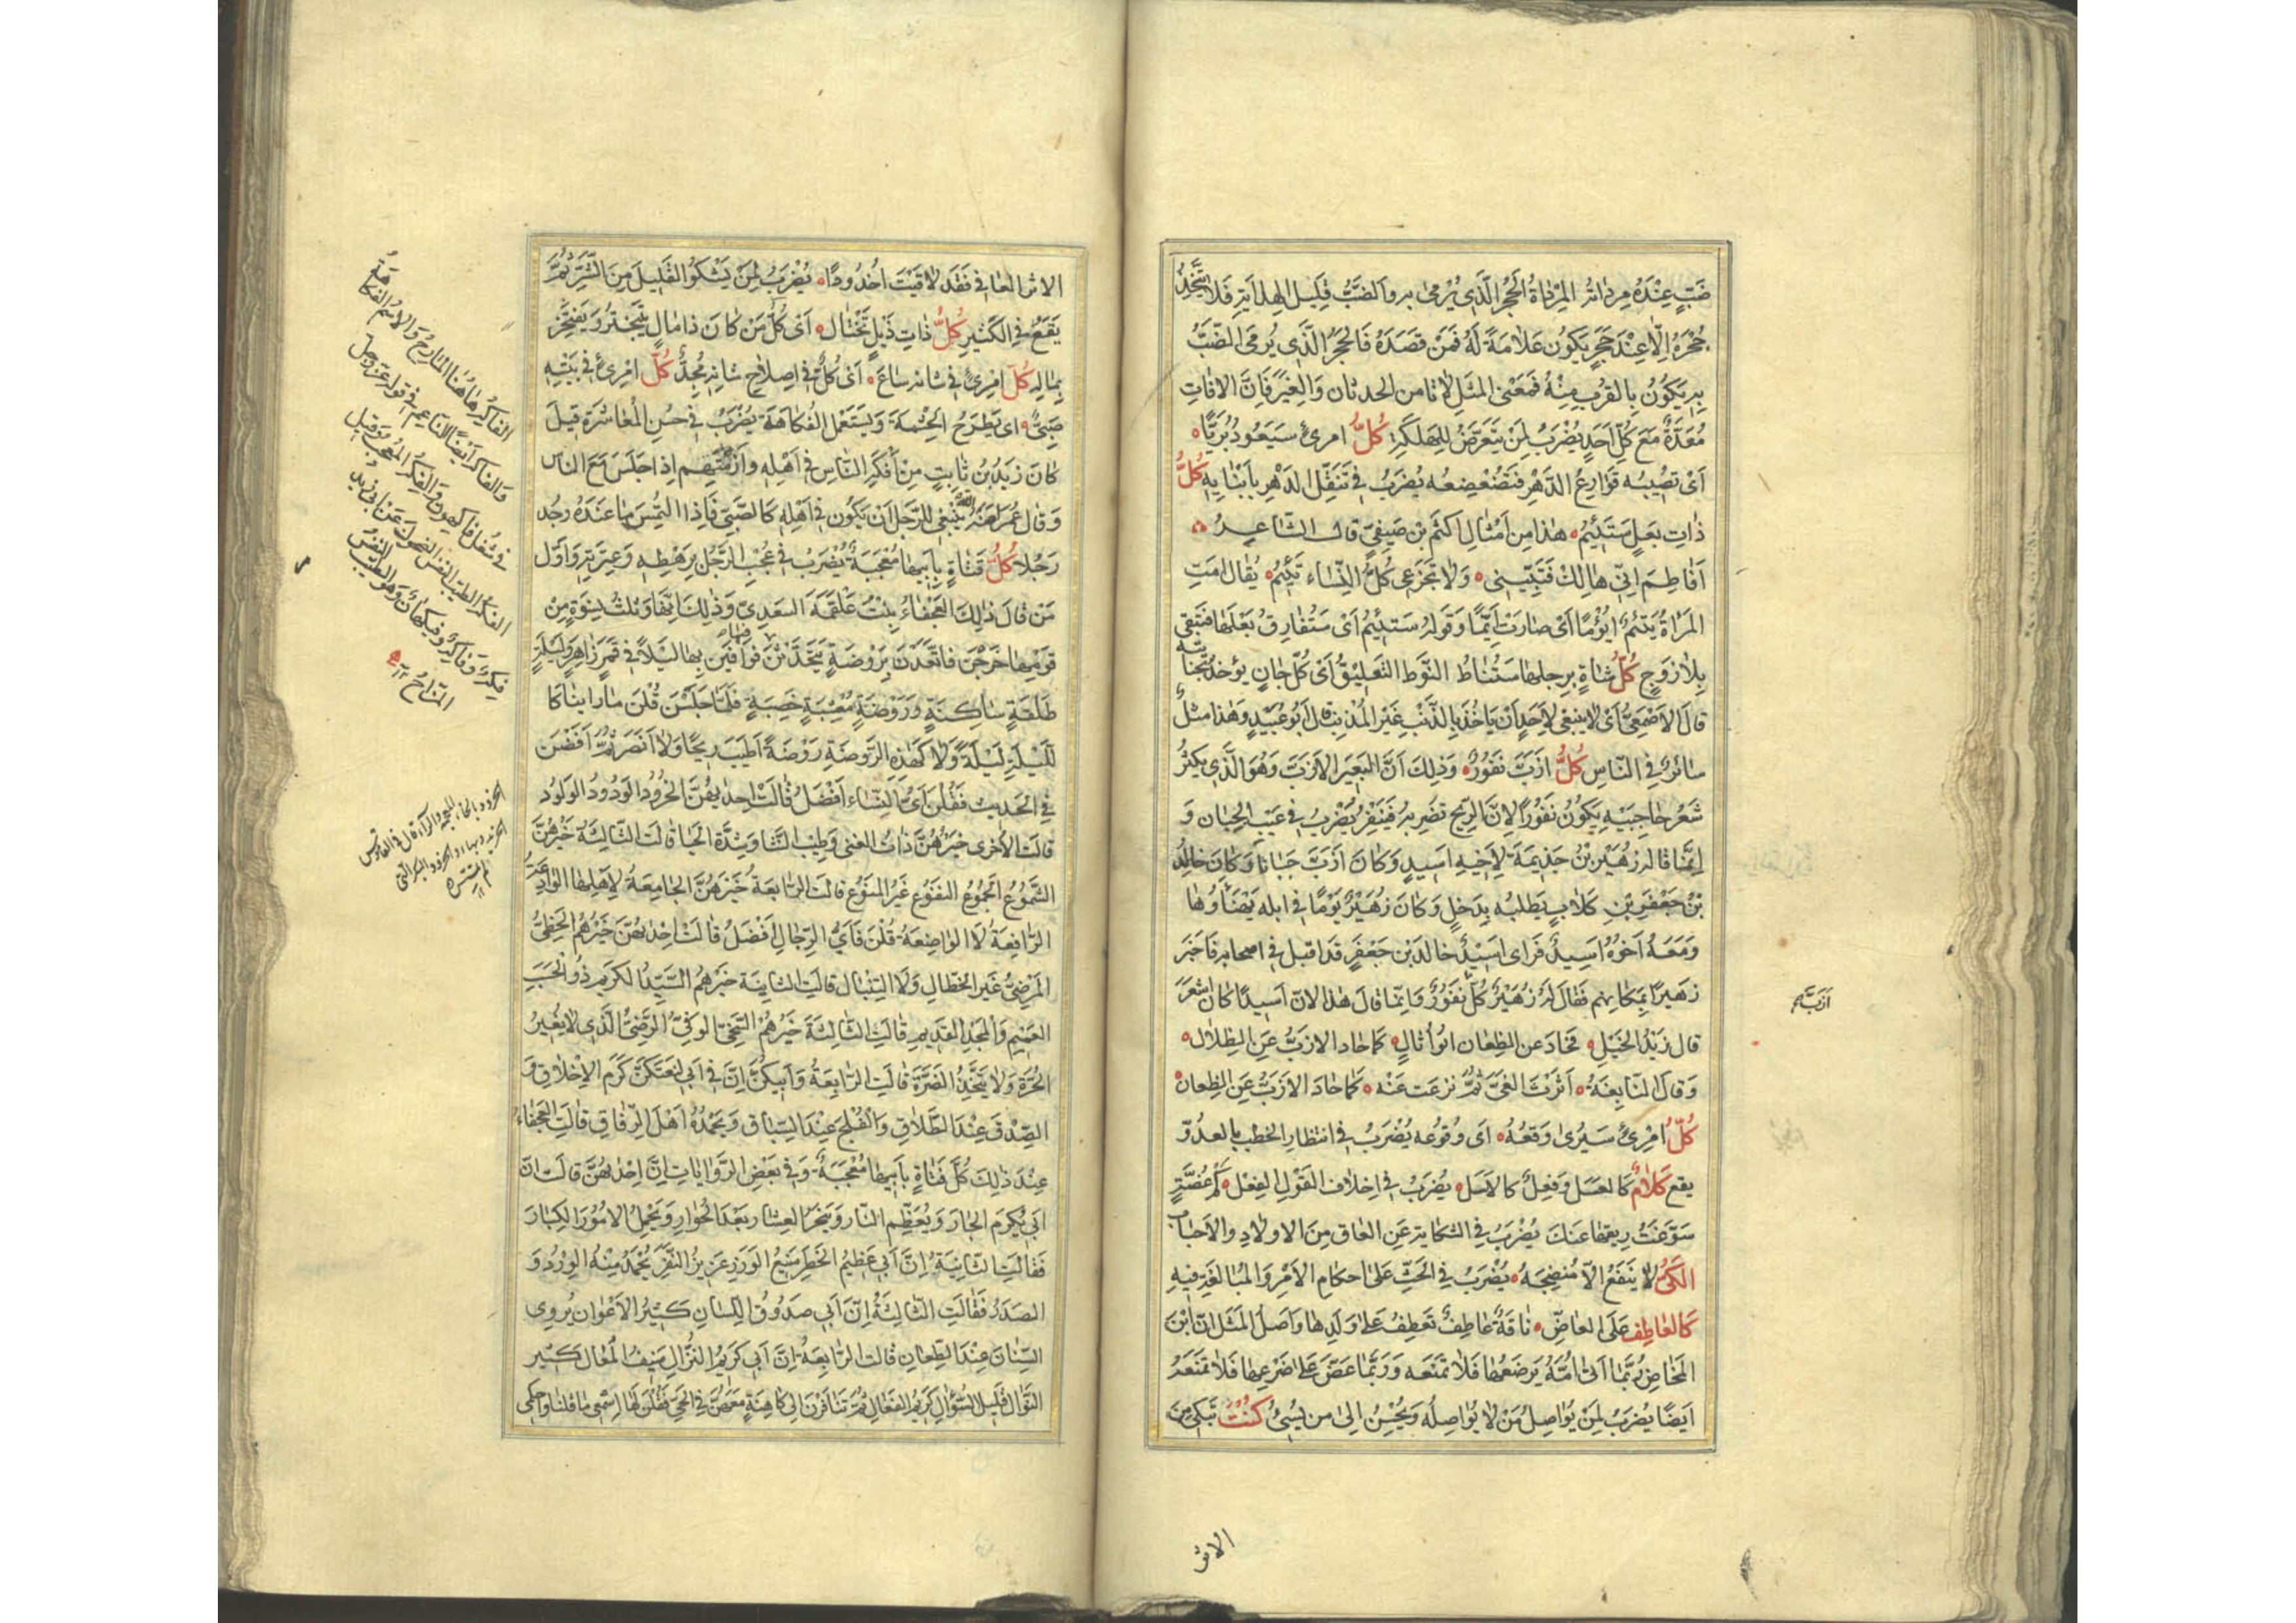 ضَبٍّ عِنْدَهُ مِرْدَاتُهُ المِرْدَاةُ الحَجَرُ الَّذِي يُرْمَى بِهِ وَالضَّبُّ قَلِيلُ الهِدَايَةِ فَلَا يَتَّخِذُ
جُحْرَهُ اِلَّا عِنْدَ حَجَرٍ يَكُونُ عَلَامَةً لَهُ فَمَنْ قَصَدَهُ فَالحَجَرُ الَّذِي يُرْمَى الضَّبُّ
بِهِ يَكُونُ بِالقُرْبِ مِنْهُ فَمَعْنَى المَثَلِ لَا تَامَن الحدثان وَالغِيَرَ فَاِنَّ الآفَاتِ
مُعَدَّةٌ مَعَ كُلِّ اَحَدٍ يُضْرَبُ لِمَنْ يَتَعَرَّضُ لِلهَلَكَةِ كُلُّ امرئ سَيَعُودُ بُرَيًّا
اَى تُصِيبُه قَوَارِعُ الدَّهْرِ فَتُضَعْضِعُه يُضْرَبُ فِي تَنَقُّلِ الدَهْرِ بِاَبْنَايِهِ كُلُّ
ذَاتِ بَعْلٍ سَتَئِيمُ هٰذَا مِن اَمْثَالِ اكثَمَ بْن صَيفِىّ قالَ الشَّاعِرُ
اَفَاطِمَ اِنِّى هَالِكٌ فَتَبَيَّنِى وَلَا تَجْزَعِى كُلُّ النِّسَاءِ تَئِيمُ يُقَالُ امَتِ
المَرْاَةُ تَئِيمُ اُيُومًا اَىْ صَارَتْ اَيِّمًا وَقَولُهُ سَتَئِيمُ اَىْ سَتُفَارِقُ بَعْلَهَا فَتَبْقَى
بِلَا زَوجٍ كُلُّ شَاةٍ بِرِجلِهَا سَتُنَاطُ النَّوطُ التَعلِيقُ اَىْ كُلُّ جَانٍ يُؤخَذُ بِجِنَايَتِهِ
قَالَ الاَصْمَعِىُّ اَىْ لَا يَنبَغِى لِاَحَدٍ اَنْ يَاخُذَ بِالذَّنْبِ غَيْرَ المُذنِبِ قال اَبُو عُبَيْدٍ وَهٰذَا مَثَلٌ
سَائِرٌ فِي النَّاسِ كُلُّ اَزَبَّ نَفُورٌ وَذٰلِكَ اَنَّ البَعِيرَ الاَزَبَّ وَهُوَ الَّذِى يَكثُرُ
شَعْرُ حَاجِبَيْهِ يَكُونُ نَفُورًا لِاَنَّ الرِّيحَ تضرِبُه فَيَنفِرُ يُضْرَبُ فِي عَيْبِ الجَبَانِ وَ
اِنَّمَا قَالَه زُهَيْرُ بْنُ جَذِيمَةَ لِاَخِيهِ اَسِيدٍ وَكَانَ اَزَبَّ جَبَانًا وَكَانَ خَالِدُ
بْنُ جَعْفَرِ بْنِ كِلَابٍ يَطلُبُه بِذَحلٍ وَكَانَ زُهَيْرٌ يَوْمًا فِي ابلِه يَهْنَأُوهَا
وَمَعَهُ اَخُوهُ اَسِيدٌ فَرَاى اَسِيدٌ خَالِدَ بْنَ جَعْفَرٍ قَد اقبلَ فِي اصحابِه فَاخبَرَ
زهَيرًا بِمَكَانِهِم فَقَالَ لَهُ زُهَيْرٌ كُلُّ نَفُورٌ وَاِنّمَا قَالَ هٰذَا لِاَنَّ اَسِيدًا كَانَ اَشْعَرَ
ازَبّ
قال زَيْدُ الخَيْلِ فَحَادَ عن الطِعَانِ ابُو اُثَالٍ كَمَا حَادَ الازَبُّ عَنِ الظِّلَالِ
وَقَالَ النَّابِغَةُ اَثَرْتَ الغَىَّ ثُمَّ نَزَعتَ عَنْه كَمَا حَادَ الازَبُّ عَنِ الظِعَانِ
كُلُّ امْرِئٍ سَيَرَى وَقْعَهُ اَى وُقُوعَه يُضْرَبُ فِي انتظارِ الخَطبِ بِالعَدُوِّ
يقع كَلَامٌ كَالعَسَلِ وَفِعلٌ كَالاَسَلِ يُضرَبُ فِي اِخلَافِ القَوْلِ الفِعْلَ كَمْ غُصَّةٍ
سَوَّغتُ رِيقَهَا عَنكَ يُضْرَبُ فِي الشكَايَةِ عَنِ العَاقِّ مِنَ الاولَادِ وَالاَحبَابِ
الكَىُّ لَا يَنفَعُ اِلَّا مُنضِجَهُ يُضْرَبُ فِي الحَثِّ عَلَى احكَامِ الاَمْرِ وَالمُبَالَغَةِ فِيهِ
كَالعَاطِفِ عَلَى العَاضِّ نَاقَةٌ عَاطِفٌ تَعطِفُ عَلَى وَلَدِهَا وَاَصلُ المَثَلِ انَّ ابْنَ
المَخَاضِ رُبَّمَا اَتَى اُمَّهُ يَرضَعُهَا فَلَا تَمنَعُه وَرُبَّمَا عَضَّ عَلَى ضَرْعِهَا فَلَا تَمنَعُهُ
اَيضًا يُضرَبُ لِمَنْ يُوَاصِلُ مَنْ لَا يُوَاصِلُه وَيُحْسِنُ اِلَى من يُسِئُ كُنْتُ تَبكِى مِنَ
الاثر
الاثرِ العَافِى فَقَد لَاقَيْتَ اُخدُودًا يُضْرَبُ لِمَنْ يَشْكُوا القَلِيلَ مِنَ الشَّرِّ ثُمَّ
يَقَعُ فِي الكَثِيرِ كُلُّ ذَاتِ ذَيْلٍ تَختَالُ اَىْ كُلُّ مَنْ كَانَ ذَا مَالٍ يَتَبَختَرُ وَيَفتَخِرُ
بِمَالِهِ كُلُّ امْرِئٍ فِي شَانِهِ سَاعٍ اَىْ كُلٌّ فِي اِصلَاحِ شَانِهِ مُجِدٌّ كُلُّ امْرِئٍ فِي بَيْتِهِ
صَبِىٌّ اى يَطرَحُ الحِشْمَةَ وَيَستَعمِلُ الفُكَاهَةَ يُضْرَبُ فِي حُسنِ المُعَاشَرَةِ قِيلَ
كَانَ زَيدُ بْنُ ثَابِتٍ مِنْ اَفكَهِ النَّاسِ فِي اَهْلِهِ وَاَزمَتِهِم اِذَا جَلَسَ مَعَ النَّاسِ
وَقَالَ عُمَرُ يَنْبَغِى لِلرَّجُلِ اَنْ يَكُونَ فِي اَهْلِهِ كَالصَّبِىِّ فَاِذَا التُمِسَ مَا عِنْدَهُ وُجِدَ
رَجُلًا كُلُّ فَتَاةٍ بِاَبِيهَا مُعْجَبَةٌ يُضْرَبُ فِي عُجْبِ الرَّجُلِ بِرَهْطِهِ وَعِترَتِهِ وَاَوَّل
مَنْ قَالَ ذٰلِكَ العَجْفَاءُ بِنْتُ عَلقَمَةَ السَعدِىّ وَذٰلِكَ اِنَّهَا وَثَلٰثُ نِسوَةٍ مِنْ
قَومِهَا خَرَجْنَ فَاتَّعَدْنَ بِرَوضَةٍ يَتَحَدَّثْنَ فِيهَا فَوَافَينَ بِهَا لَيْلًا فِي قَمَرٍ زَاهِرٍ وَلَيْلَةٍ
طَلقَةٍ سَاكِنَةٍ وَرَوضَةٍ مُعشِبَةٍ خَصبَةٍ فَلَمَّا جَلَسْنَ قُلْنَ مَا رَاَينَا كَا
للَّيْلَةِ لَيْلَةً وَلَا كَهٰذِهِ الرَّوضَةِ رَوْضَةً اَطيَبَ رِيحًا وَلَا اَنضَرَ ثُمَّ اَفَضْنَ
فِي الحَدِيثِ فَقُلْنَ اَىُّ النِّسَاءِ اَفْضَلُ قَالَتْ اِحدٰيهُنَّ الخَرُودُ الوَدُودُ الوَلُودُ
قَالَتِ الاُخرَى خَيْرُهُنَّ ذَاتُ الغِنَى وَطِيبِ الثَّنَا وَشِدَّةِ الحَيَا قَالَتِ الثَّالِثَةُ خَيرُهُنَّ
الشَّمُوعُ الجَمُوعُ النَفُوعُ غَيْرُ المَنُوعِ قَالَتِ الرَّابِعَةُ خَيْرُهُنَّ الجَامِعَةُ لِاَهلِهَا الوَادِعَةُ
الرَّافِعَةُ لَا الوَاضِعَةُ قُلْنَ فَاَىُّ الرِّجَالِ اَفْضَلُ قَالَتْ اِحْدٰيهُنَّ خَيْرُهُمُ الحَظِىُّ
المَرْضِىُّ غَيْرُ الخَطَّالِ وَلَا التِّنبَالِ قَالَتِ الثَّانِيَة خَيْرُهُمُ السَّيِّدُ الكَرِيمُ ذُو الحَسَبِ
العَمِيمِ وَالمَجدِ القَدِيمِ قَالَتِ الثَّالِثَةُ خَيْرُهُمْ السَّخِىُّ الوَفِىُّ الرَّضِىُّ الَّذِى لَا يُغِيرُ
الحُرَّةَ وَلَا يَتَّخِذُ الضَرَّةَ قَالَتِ الرَّابِعَةُ وَاَبِيكُنَّ اِنَّ فِي اَبِى لَنَعتَكُنَّ كَرَمَ الاَخْلَاقِ وَ
الصِّدْقَ عِنْدَ الطَّلَاقِ وَالفُلْجَ عِنْدَ السِّبَاقِ وَيَحمَدُهُ اَهْلُ الرِّفَاقِ قَالَتِ العَجْفَاءُ
عِنْدَ ذٰلِكَ كُلُّ فَتَاةٍ بِاَبِيهَا مُعْجَبَةٌ وَفِي بَعْضِ الرِّوَايَاتِ اِنَّ اِحْدٰيهُنَّ قَالَتْ اِنَّ
اَبِى يُكرِمُ الجَارَ وَيُعَظِّمُ النَّارَ وَيَنحَرُ العِشَارَ بَعْدَ الحُوَارِ وَيَحمِلُ الاُمُورَ الكِبَارَ
فَقَالَتِ الثَّانِيَةُ اِنَّ اَبِى عَظِيمُ الخَطَرِ مَنِيعُ الوَزَرِ عَزِيزُ النَّفَرِ يُحْمَدُ مِنْهُ الوِرْدُ وَ
الصَدَرُ فَقَالَتِ الثَّالِثَةُ اِنَّ اَبِى صَدُوقُ اللِّسَانِ كَثِيرُ الاَعْوَانِ يُروِى
السِّنَانَ عِنْدَ الطِّعَانِ قَالَتِ الرَّابِعَةُ اِنَّ اَبِى كَرِيمُ النِّزَالِ مُنِيفُ المَقَالِ كَثِيرُ
النَّوَالِ قَلِيلُ السُّؤَالِ كَرِيمُ الفَعَالِ ثُمَّ تَنَافَرْنَ اِلَى كَاهِنَةٍ مَعَهُنَّ فِي الحَىِّ فَقُلْنَ لَهَا اِسْمَعِى مَا قُلنَا وَاحكُمِى
الفَاكِهُ هَاهُنَا المَازِحُ وَالاِسْمُ الفُكَاهَةُ
وَالفَاكِهُ اَيْضًا النَّاعِمُ فِي قوله عَزَّ وَجَلَّ
فِي شُغُلٍ فَاكِهُونَ وَالفَكِهُ المُعْجَبُ وَقِيلَ
الفَكِهُ الطَيِّبُ النَفْسِ الضَحُوكُ عَنْ ابى زَيْدٍ
فَكِهٌ وَفَاكِهٌ وَفَيكَهَانٌ وَهُوَ الطَيِّبُ النَفْسِ
المَزَّاحُ
الخرود بالخاء المعجمة والراء قال في القاموس
الخريد وبهاء والخرود البكر التى
لم تمسس